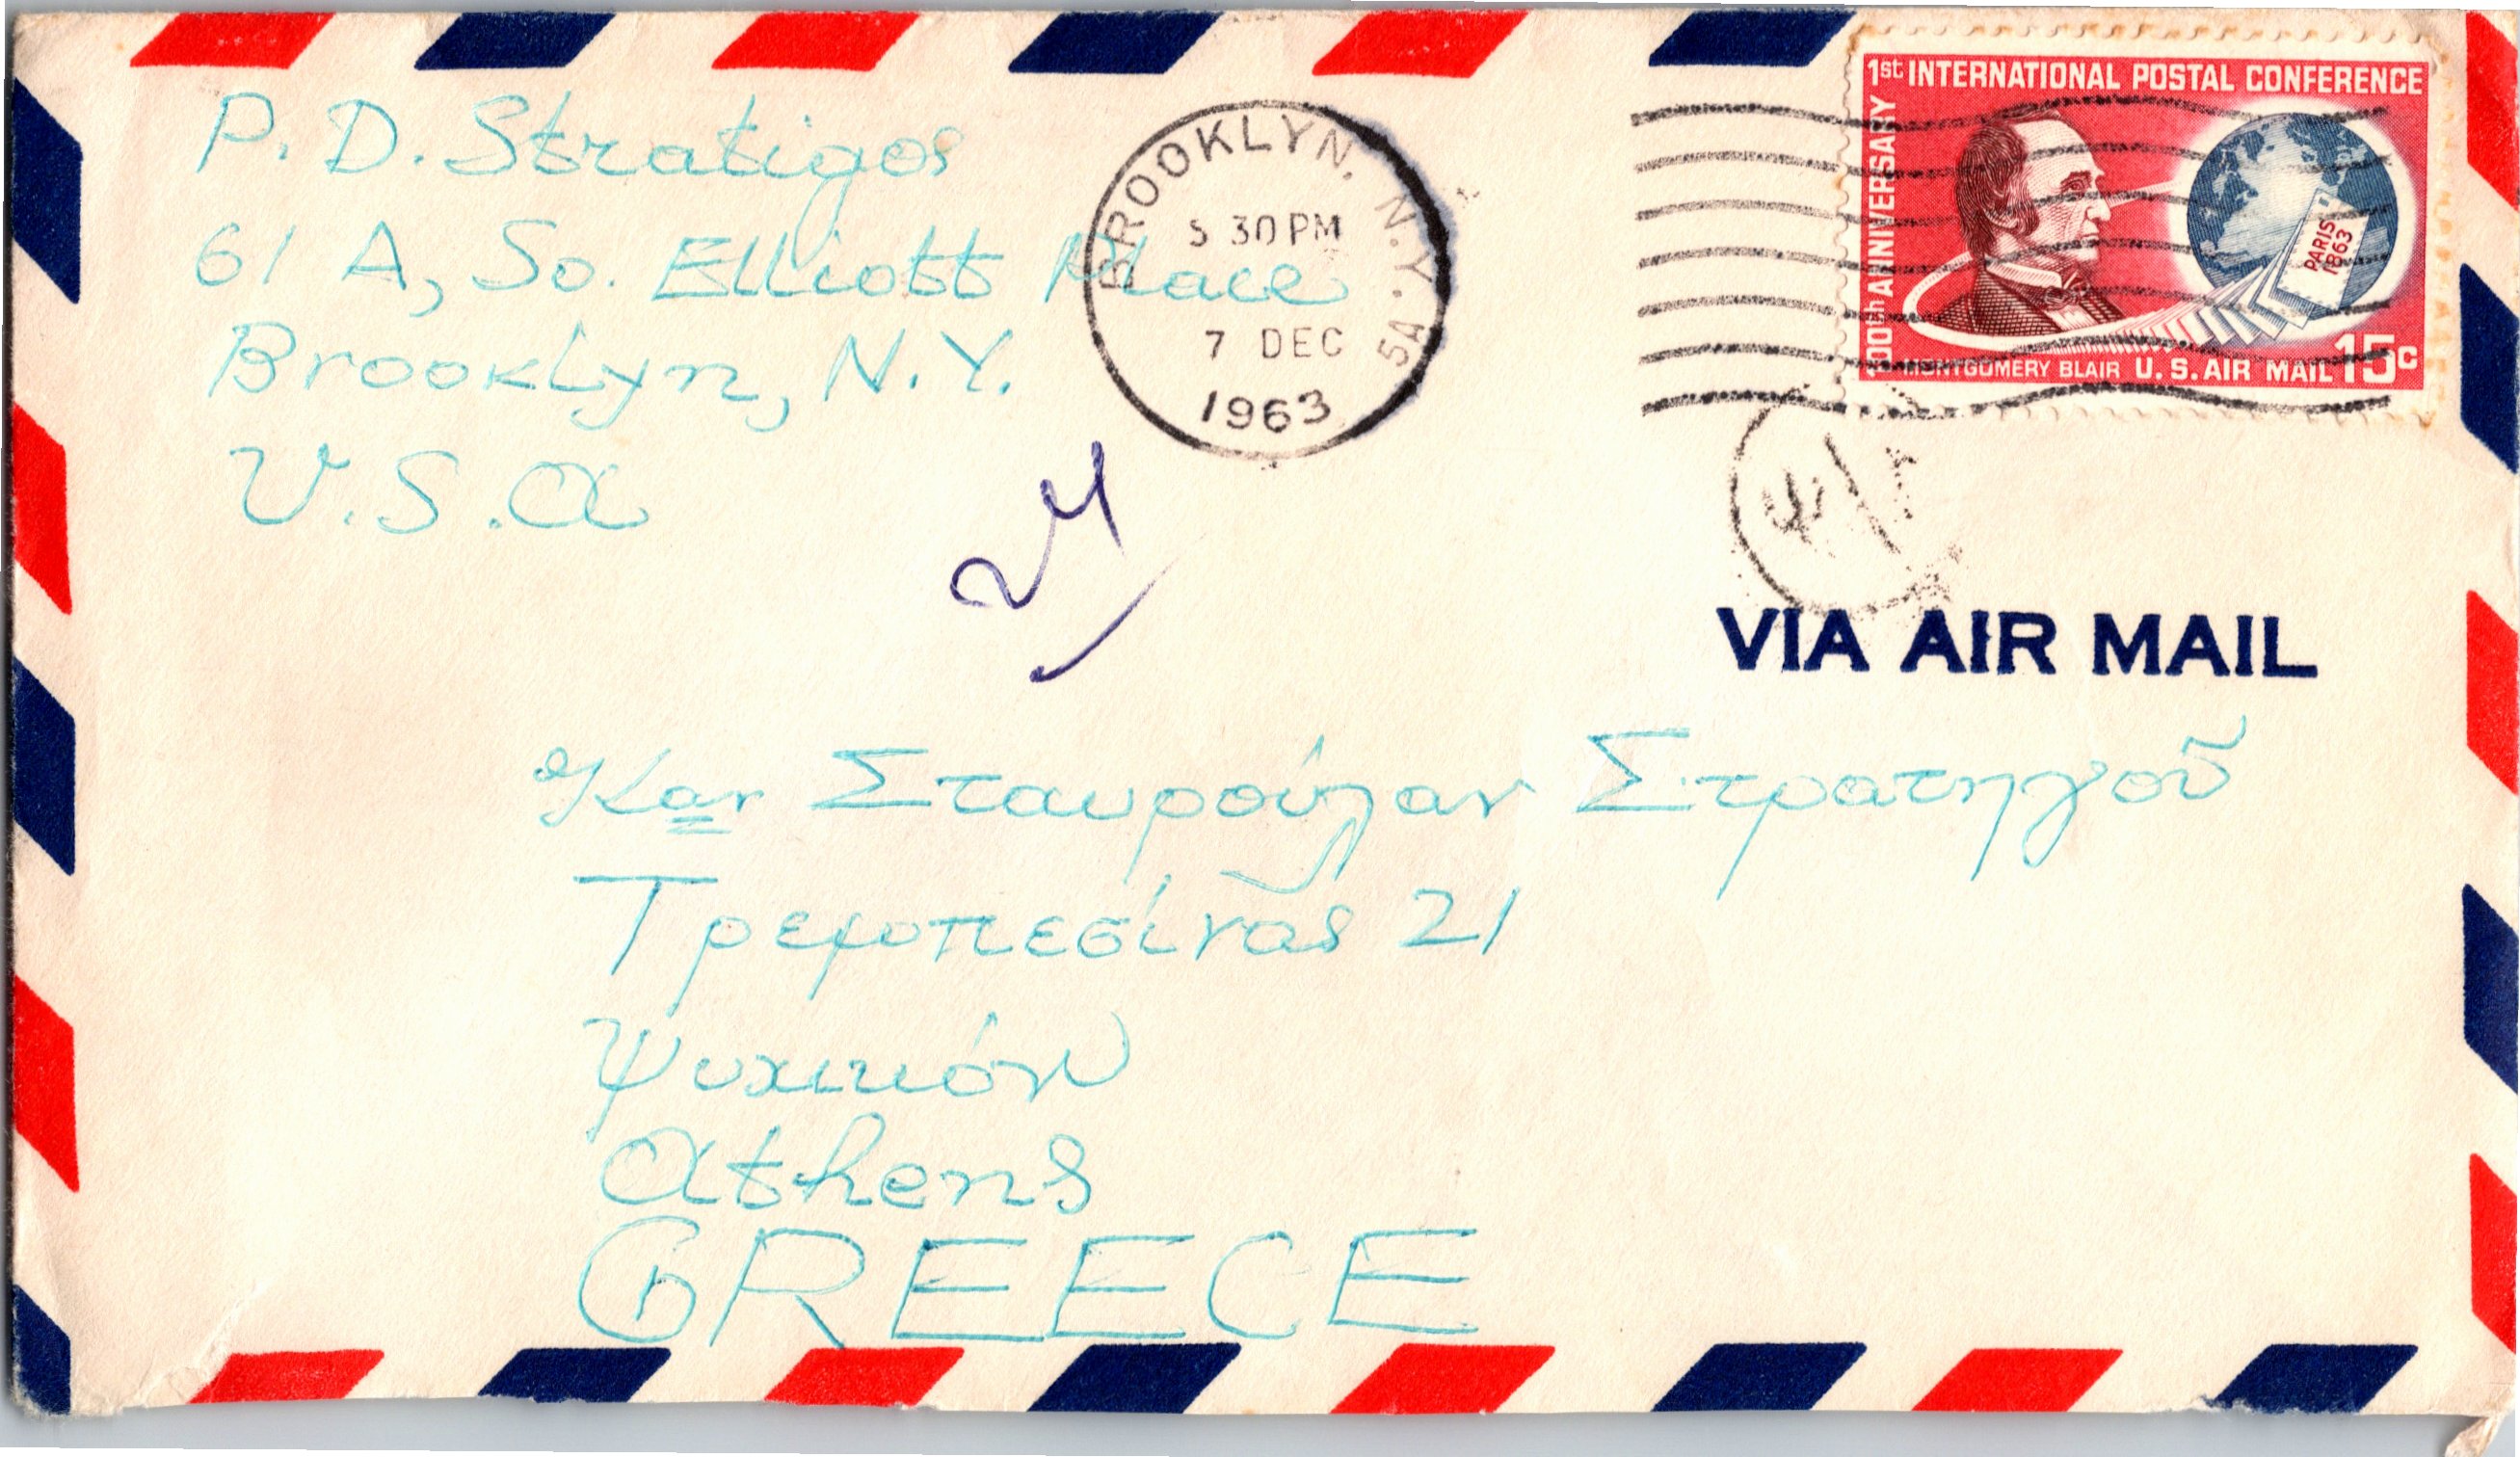 P. D. Stratigos
61 A, So. Elliott Place
Brooklyn, N.Y.
U.S.A
BROOKLYN, N.Y. 5A
5 30 PM
7 DEC
1963
1st INTERNATIONAL POSTAL CONFERENCE
100th ANNIVERSARY
PARIS
1863
MONTGOMERY BLAIR U.S. AIR MAIL 15c
VIA AIR MAIL
Καν Σταυρούλαν Στρατηγοῦ
Τρεμπεσίνας 21
Ψυχικόν
Athens
GREECE